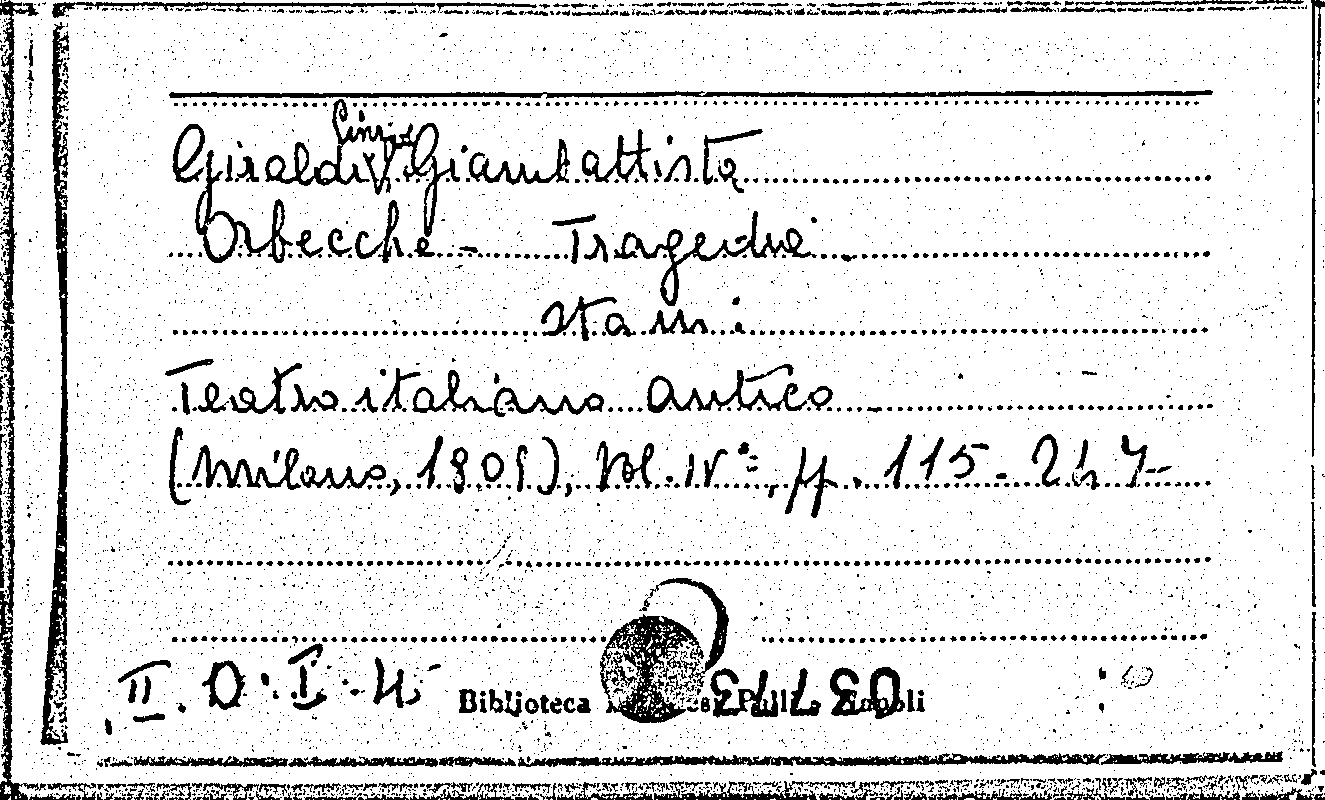 Giraldi Cinzio Giambattista
Orbecche - Tragedia
sta in:
Teatro italiano antico
(Milano, 1809), Vol. IV°=, pp. 115-247-
II. D. I. 4
Biblioteca Napoli